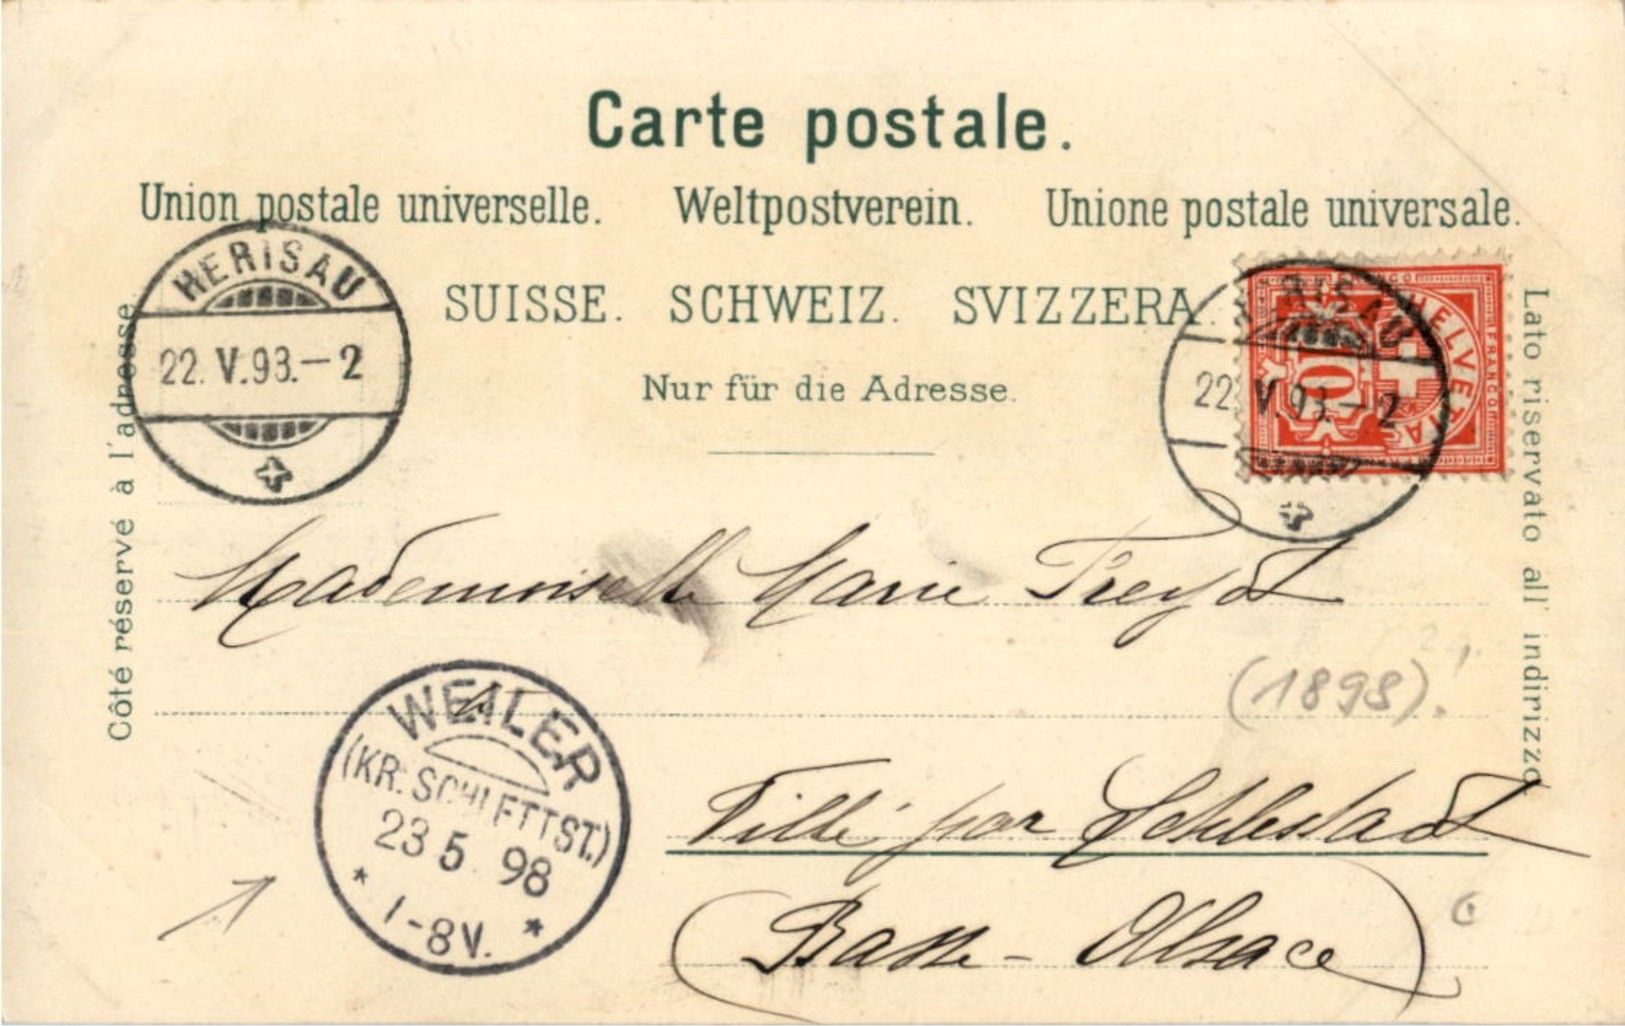 Carte postale.
Union postale universelle. Weltpostverein. Unione postale universale.
SUISSE. SCHWEIZ. SVIZZERA.
Nur für die Adresse.
Côté réservé à l'adresse.
Lato riservato all' indirizzo
HERISAU
22. V. 93.–2
HELVETIA
FRANCO
10
RISAU
22. V. 93.–2
Mademoiselle Marie Freydt
(1898)!
WEILER
(KR. SCHLETTST.)
23 5 98
* 1-8V. *
Villé par Schlestadt
(Basse-Alsace)